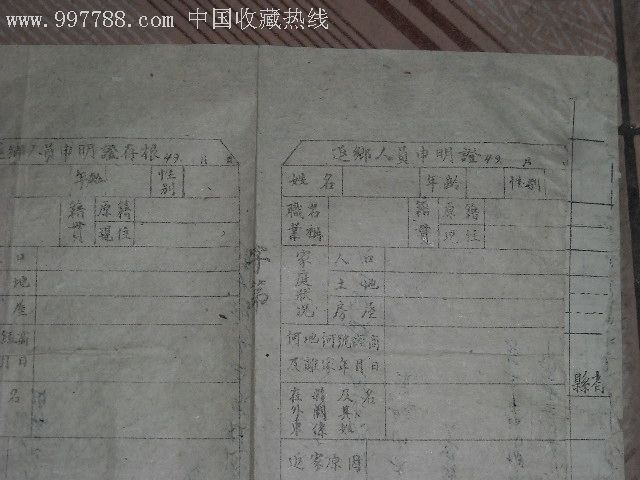 www.997788.com 中国收藏热线
返鄉人員申明證 49. 月
姓名 年齡 性別
職業 名稱 籍貫 原籍 現住
家庭狀況 人口 土地 房屋
何地何號經商
及離家年月日
在外 關係 及其 名
返家原因
縣
字第
鄉人員申明證存根 49. 月
年齡 性別
籍貫 原籍 現住
口
地
屋
商
月日
名